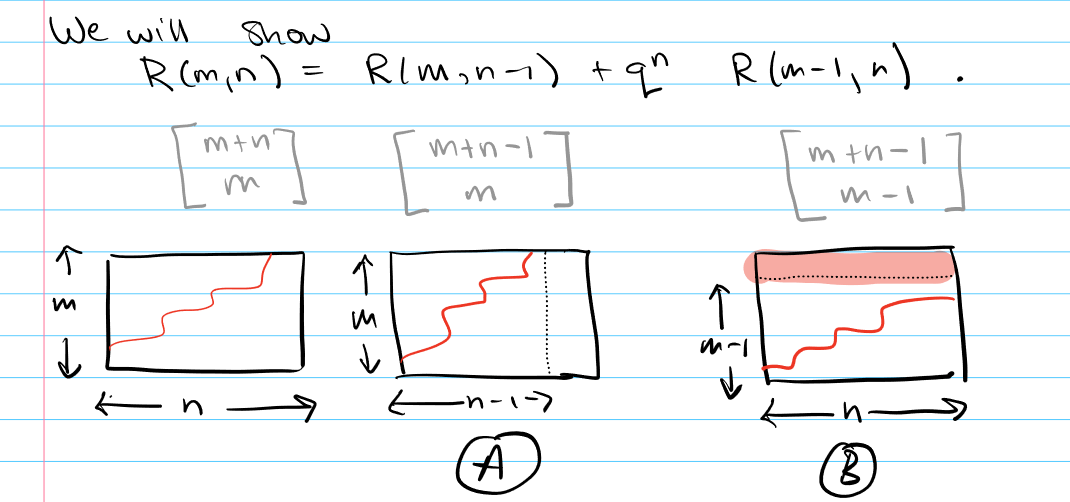 We will show
R(m,n) = R(m,n-1) + qⁿ R(m-1,n).
[m+n
m] [m+n-1
m] [m+n-1
m-1]
m m m-1
n n-1 n
A B